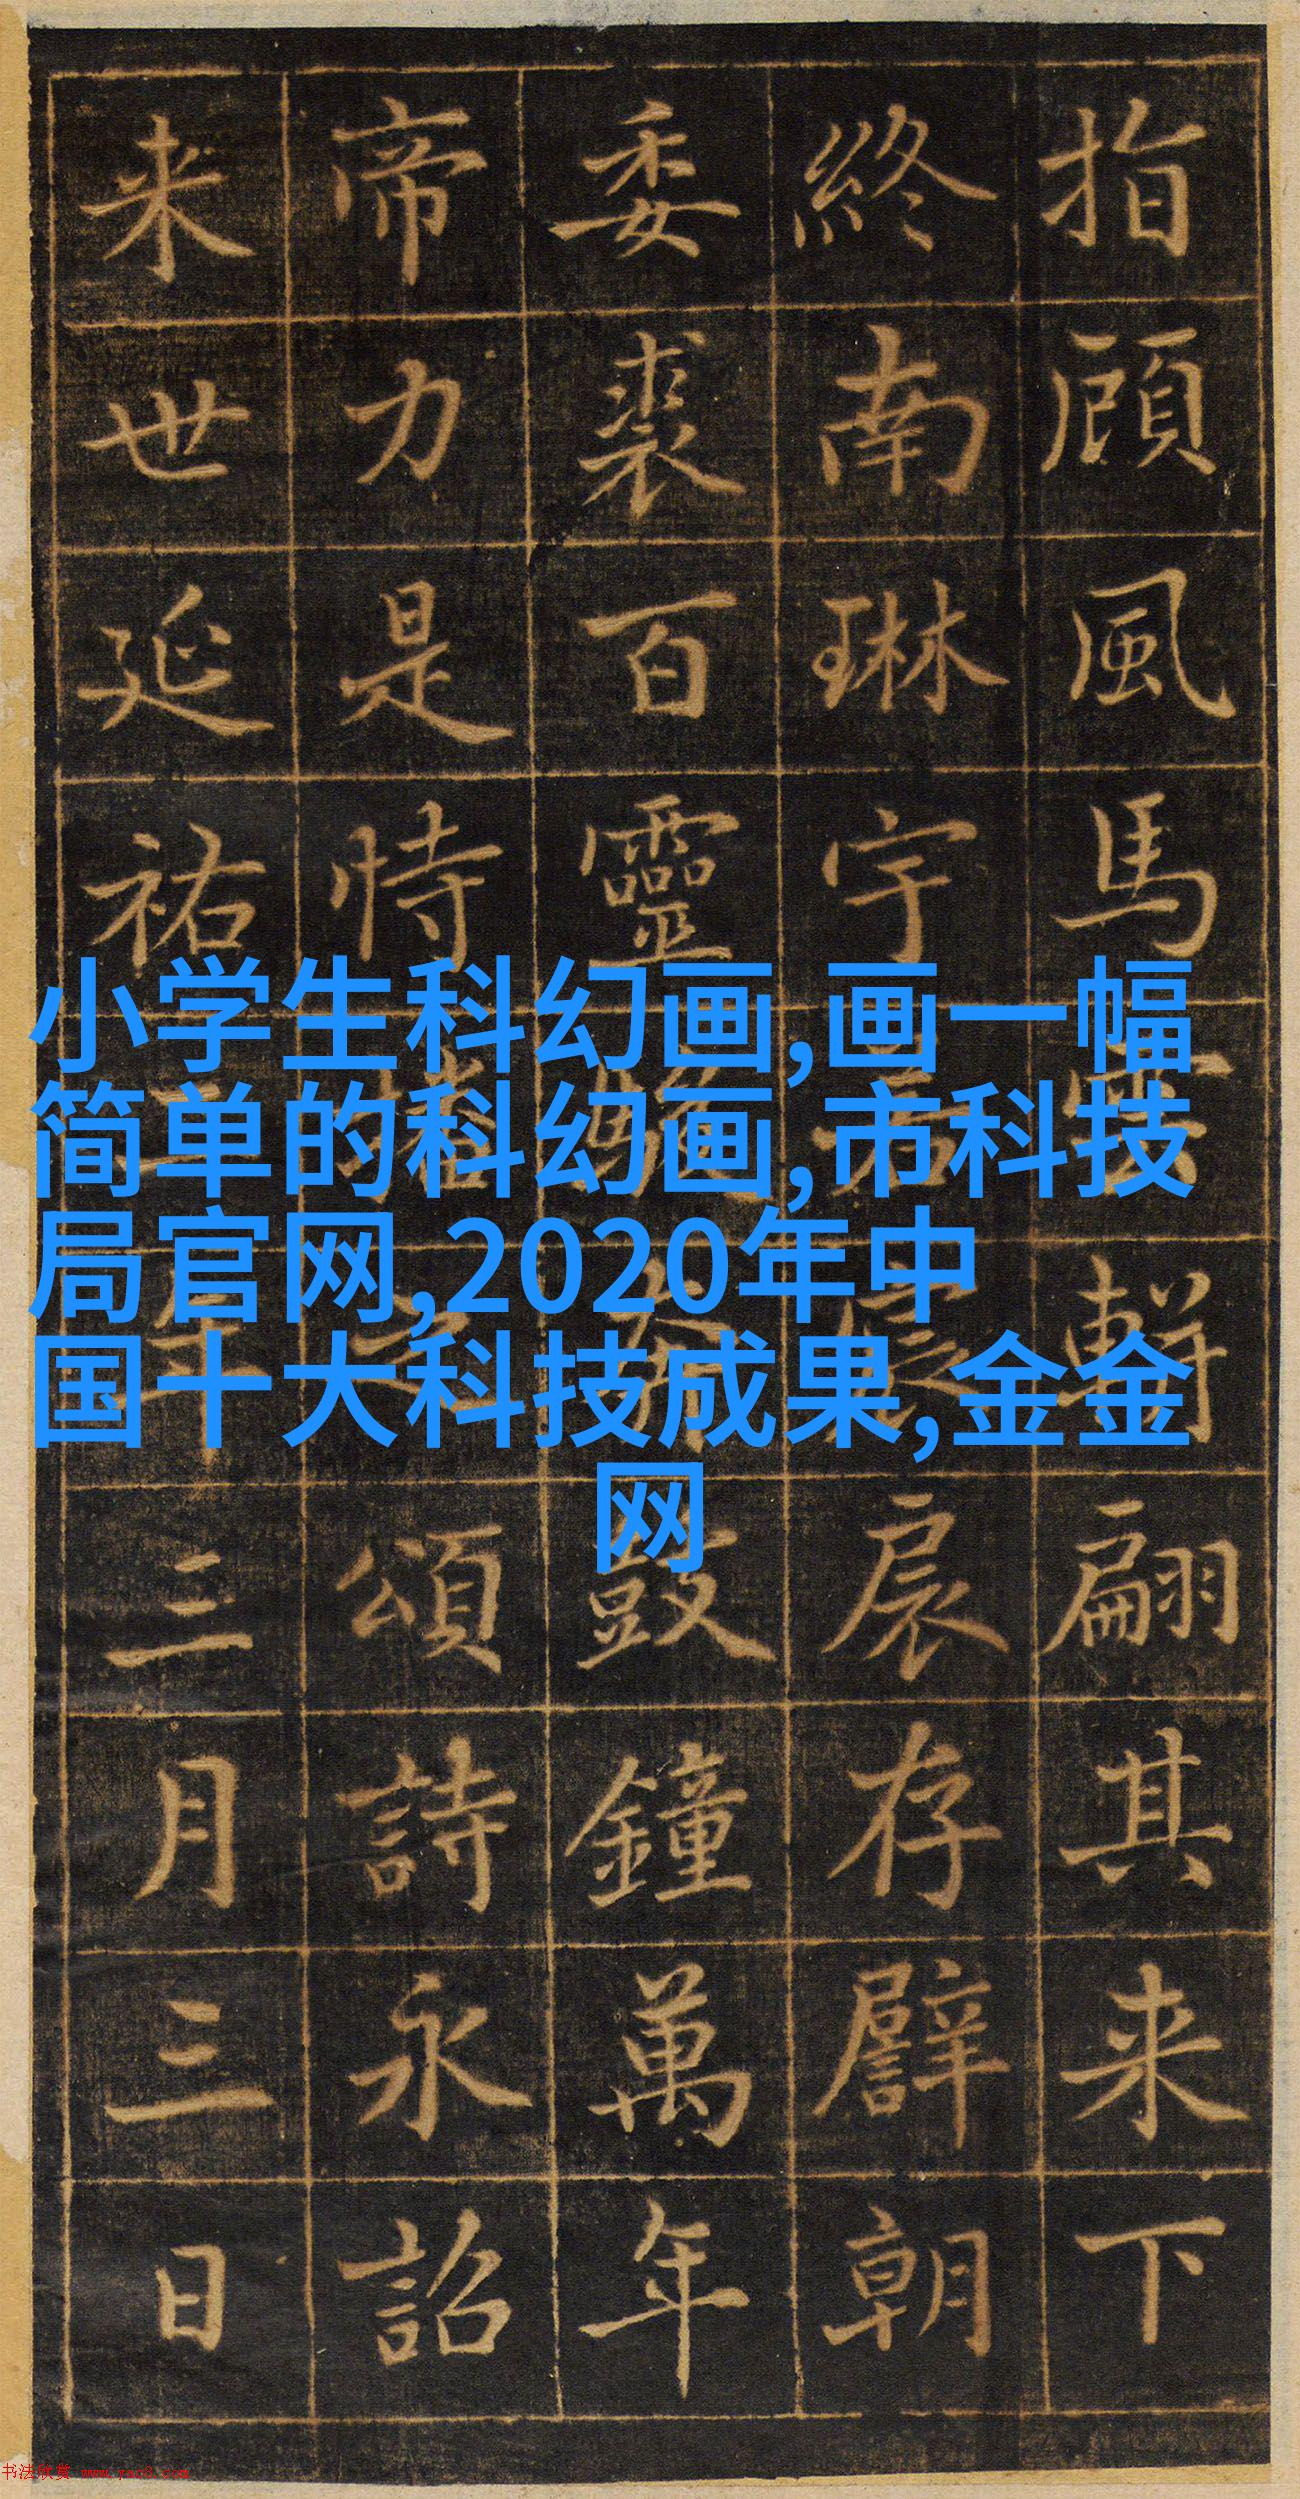 指顧風馬雲軿翩其来下
終南琳宇宸扆存譬朝
委裘百靈鼓鐘萬年
帝力是恃播之頌詩永詔
来世延祐年三月三日
小学生科幻画,画一幅
简单的科幻画,市科技
局官网,2020年中
国十大科技成果,金金
网
书法欣赏 www.yac8.com